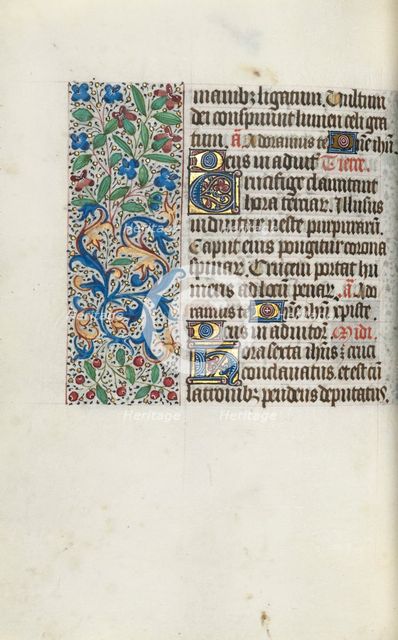 manibz ligatum. Uultum
dei conspuunt lumen celi gra
tum. a Adoramus te Dne ihu
Deus in adiut Tierce.
Crucifige clamitant
hora terciar. Illusus
induitur ueste purpurarum.
Caput eius pongitur corona
spinar. Crucem portat hu
meris ad locum penar. a Ado
ramus te Dne ihu xpiste.
Deus in adiutor. Midi.
Hora sexta ihus e cruci
conclauatus. et est cu
latronibz pendens deputatus.
Heritage
Heritage
Heritage
Heritage